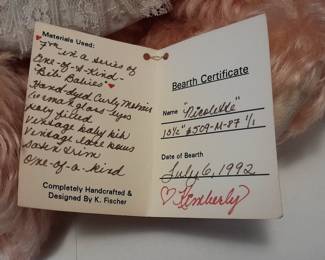 Materials Used:
7th in a series of
One-of-a-Kind-
"Bib Babies"
Hand-dyed Curly Mohair
German glass eyes
Poly filled
Vintage baby bib
Vintage lace hows
Satin trim
One-of-a-kind
Completely Handcrafted &
Designed By K. Fischer
Bearth Certificate
Name "Nicolette"
10½" #509-M-87 1/1
Date of Bearth
July 6, 1992
Kimberly